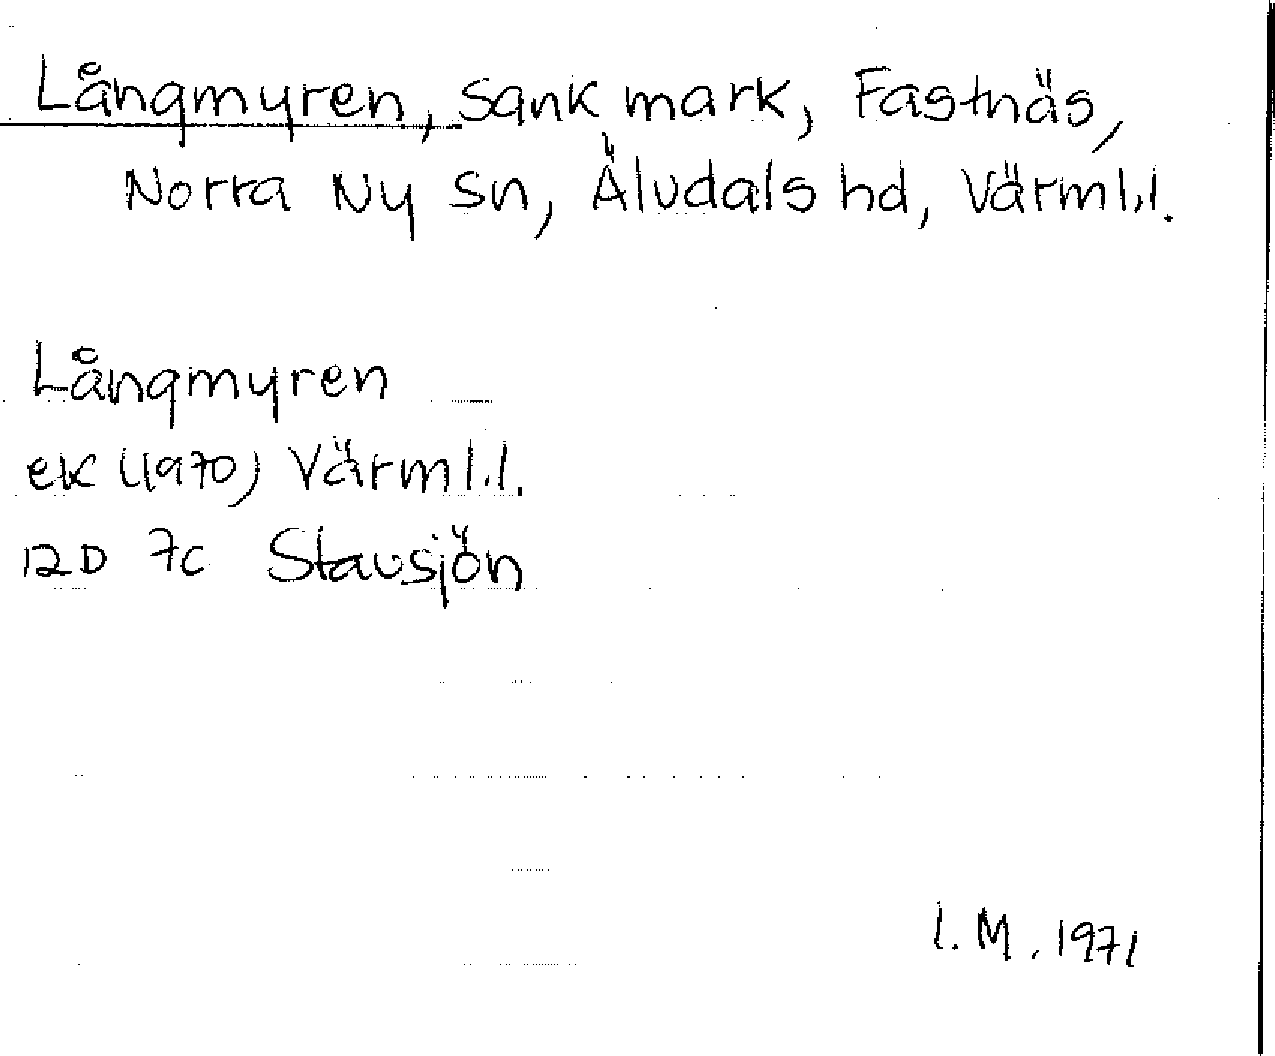 Långmyren, sank mark, Fastnäs,
Norra Ny sn, Älvdals hd, Värml.l.
Långmyren
ek (1970) Värml.l.
12D 7c Stavsjön
I. M. 1971